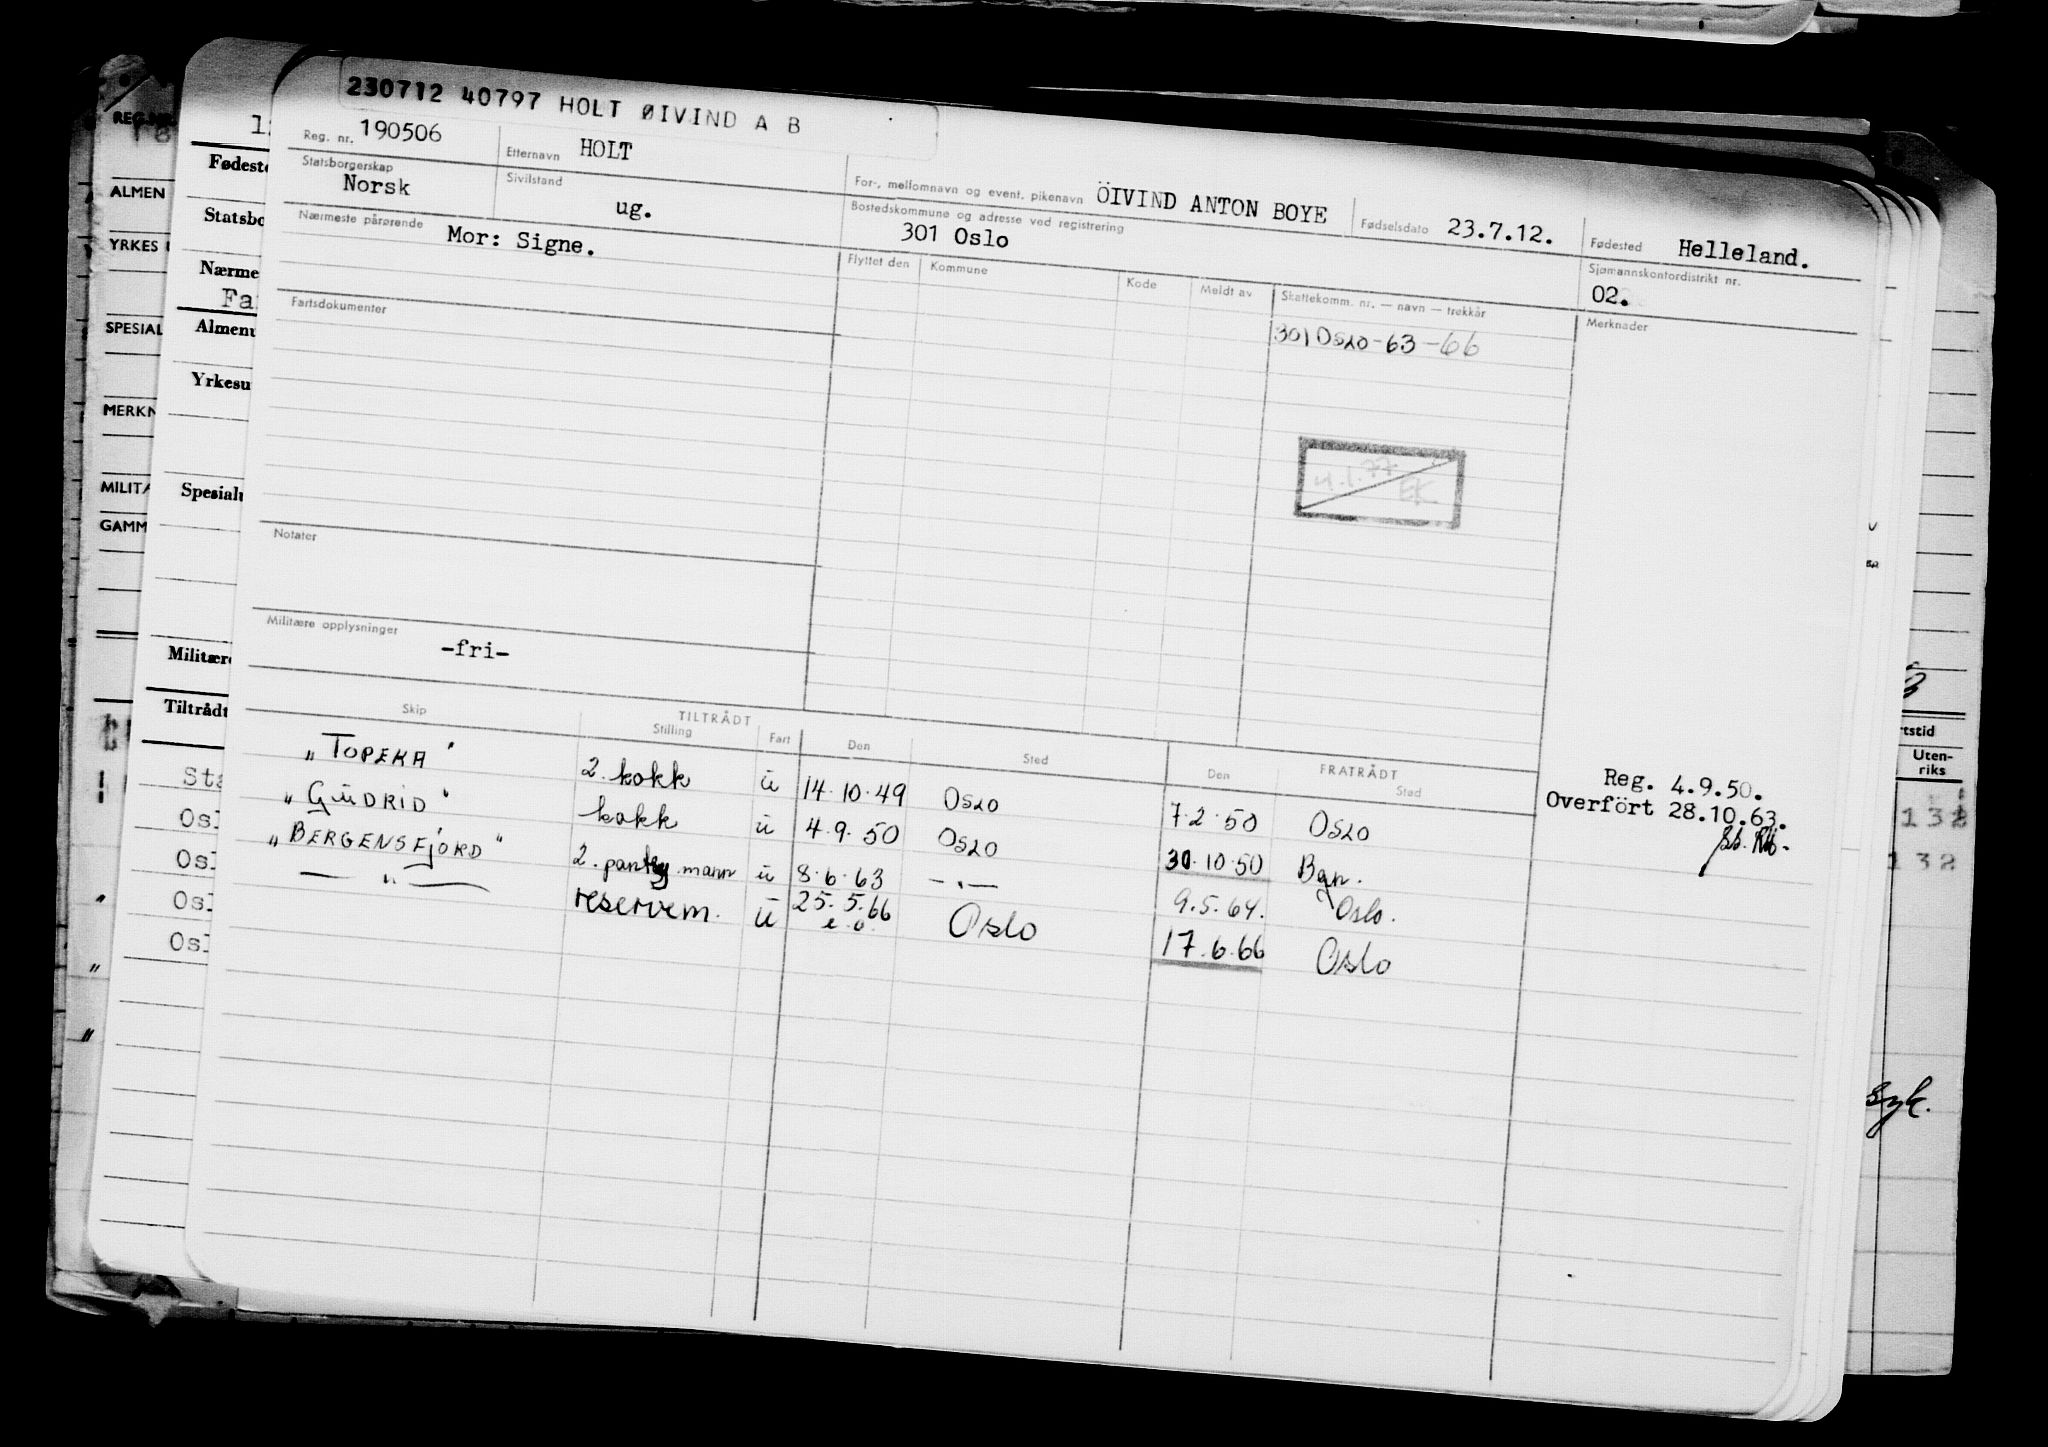 230712 40797 HOLT ØIVIND A B
Reg. nr. 190506 Etternavn HOLT For-, mellomnavn og event. pikenavn ÖIVIND ANTON BOYE Fødselsdato 23.7.12. Fødested Helleland.
Statsborgerskap Norsk Sivilstand ug. Bostedskommune og adresse ved registrering 301 Oslo Sjømannskontordistrikt nr. 02.
Nærmeste pårørende Mor: Signe. Flyttet den Kommune Kode Meldt av Skattekomm. nr. — navn — trekkår Merknader
301 Oslo-63-66
Fartsdokumenter
4.1.77 EK
Notater
Militære opplysninger
-fri-
TILTRÅDT FRATRÅDT
Skip Stilling Fart Den Sted Den Sted
"TOPEKA" 2. kokk u 14.10.49 Oslo 7.2.50 Oslo
"GUDRID" kokk u 4.9.50 Oslo 30.10.50 Bgn.
"BERGENSFJORD" 2. pantry mann u 8.6.63 —"— 9.5.64. Oslo.
—"— reservem. u 25.5.66 Oslo 17.6.66 Oslo
e.o.
Reg. 4.9.50.
Overfört 28.10.63.
REG.NR.
ALMEN
YRKES
SPESIAL
MERKN
MILITÆ
GAMM
Fødeste
Statsbo
Nærme
Fa
Almenu
Yrkesu
Spesialu
Militære
Tiltrådt
Sta
Osl
Osl
Osl
Osl
rtstid
Uten-
riks
132
132
syk.